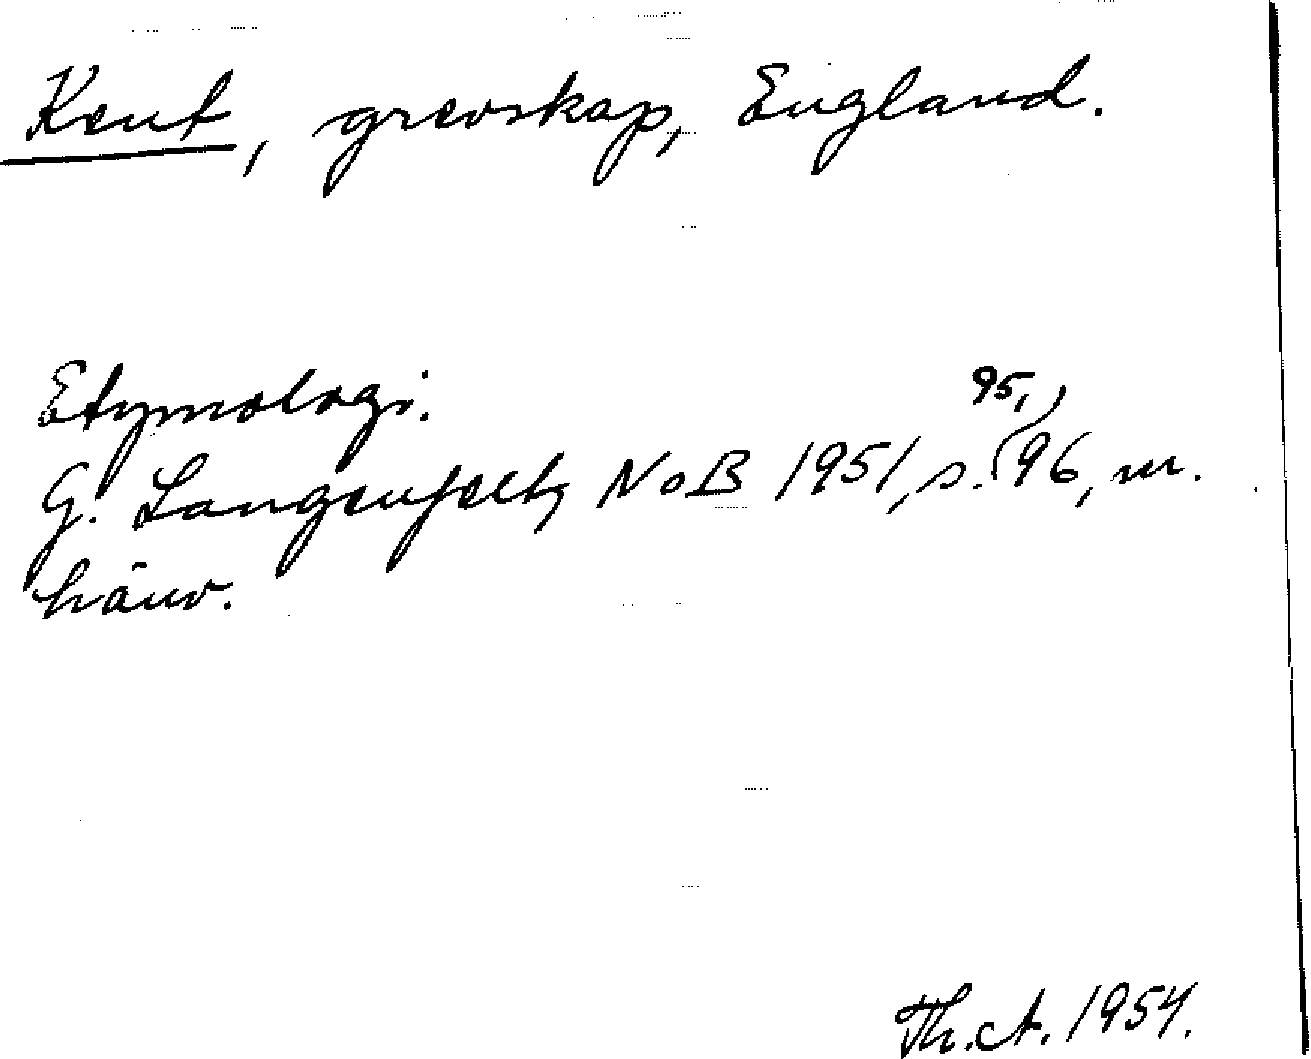 Kent, grevskap, England.
Etymologi.
G. Langenfelt, NoB 1951, s. 95, 96, m.
hänv.
Th. A. 1954.